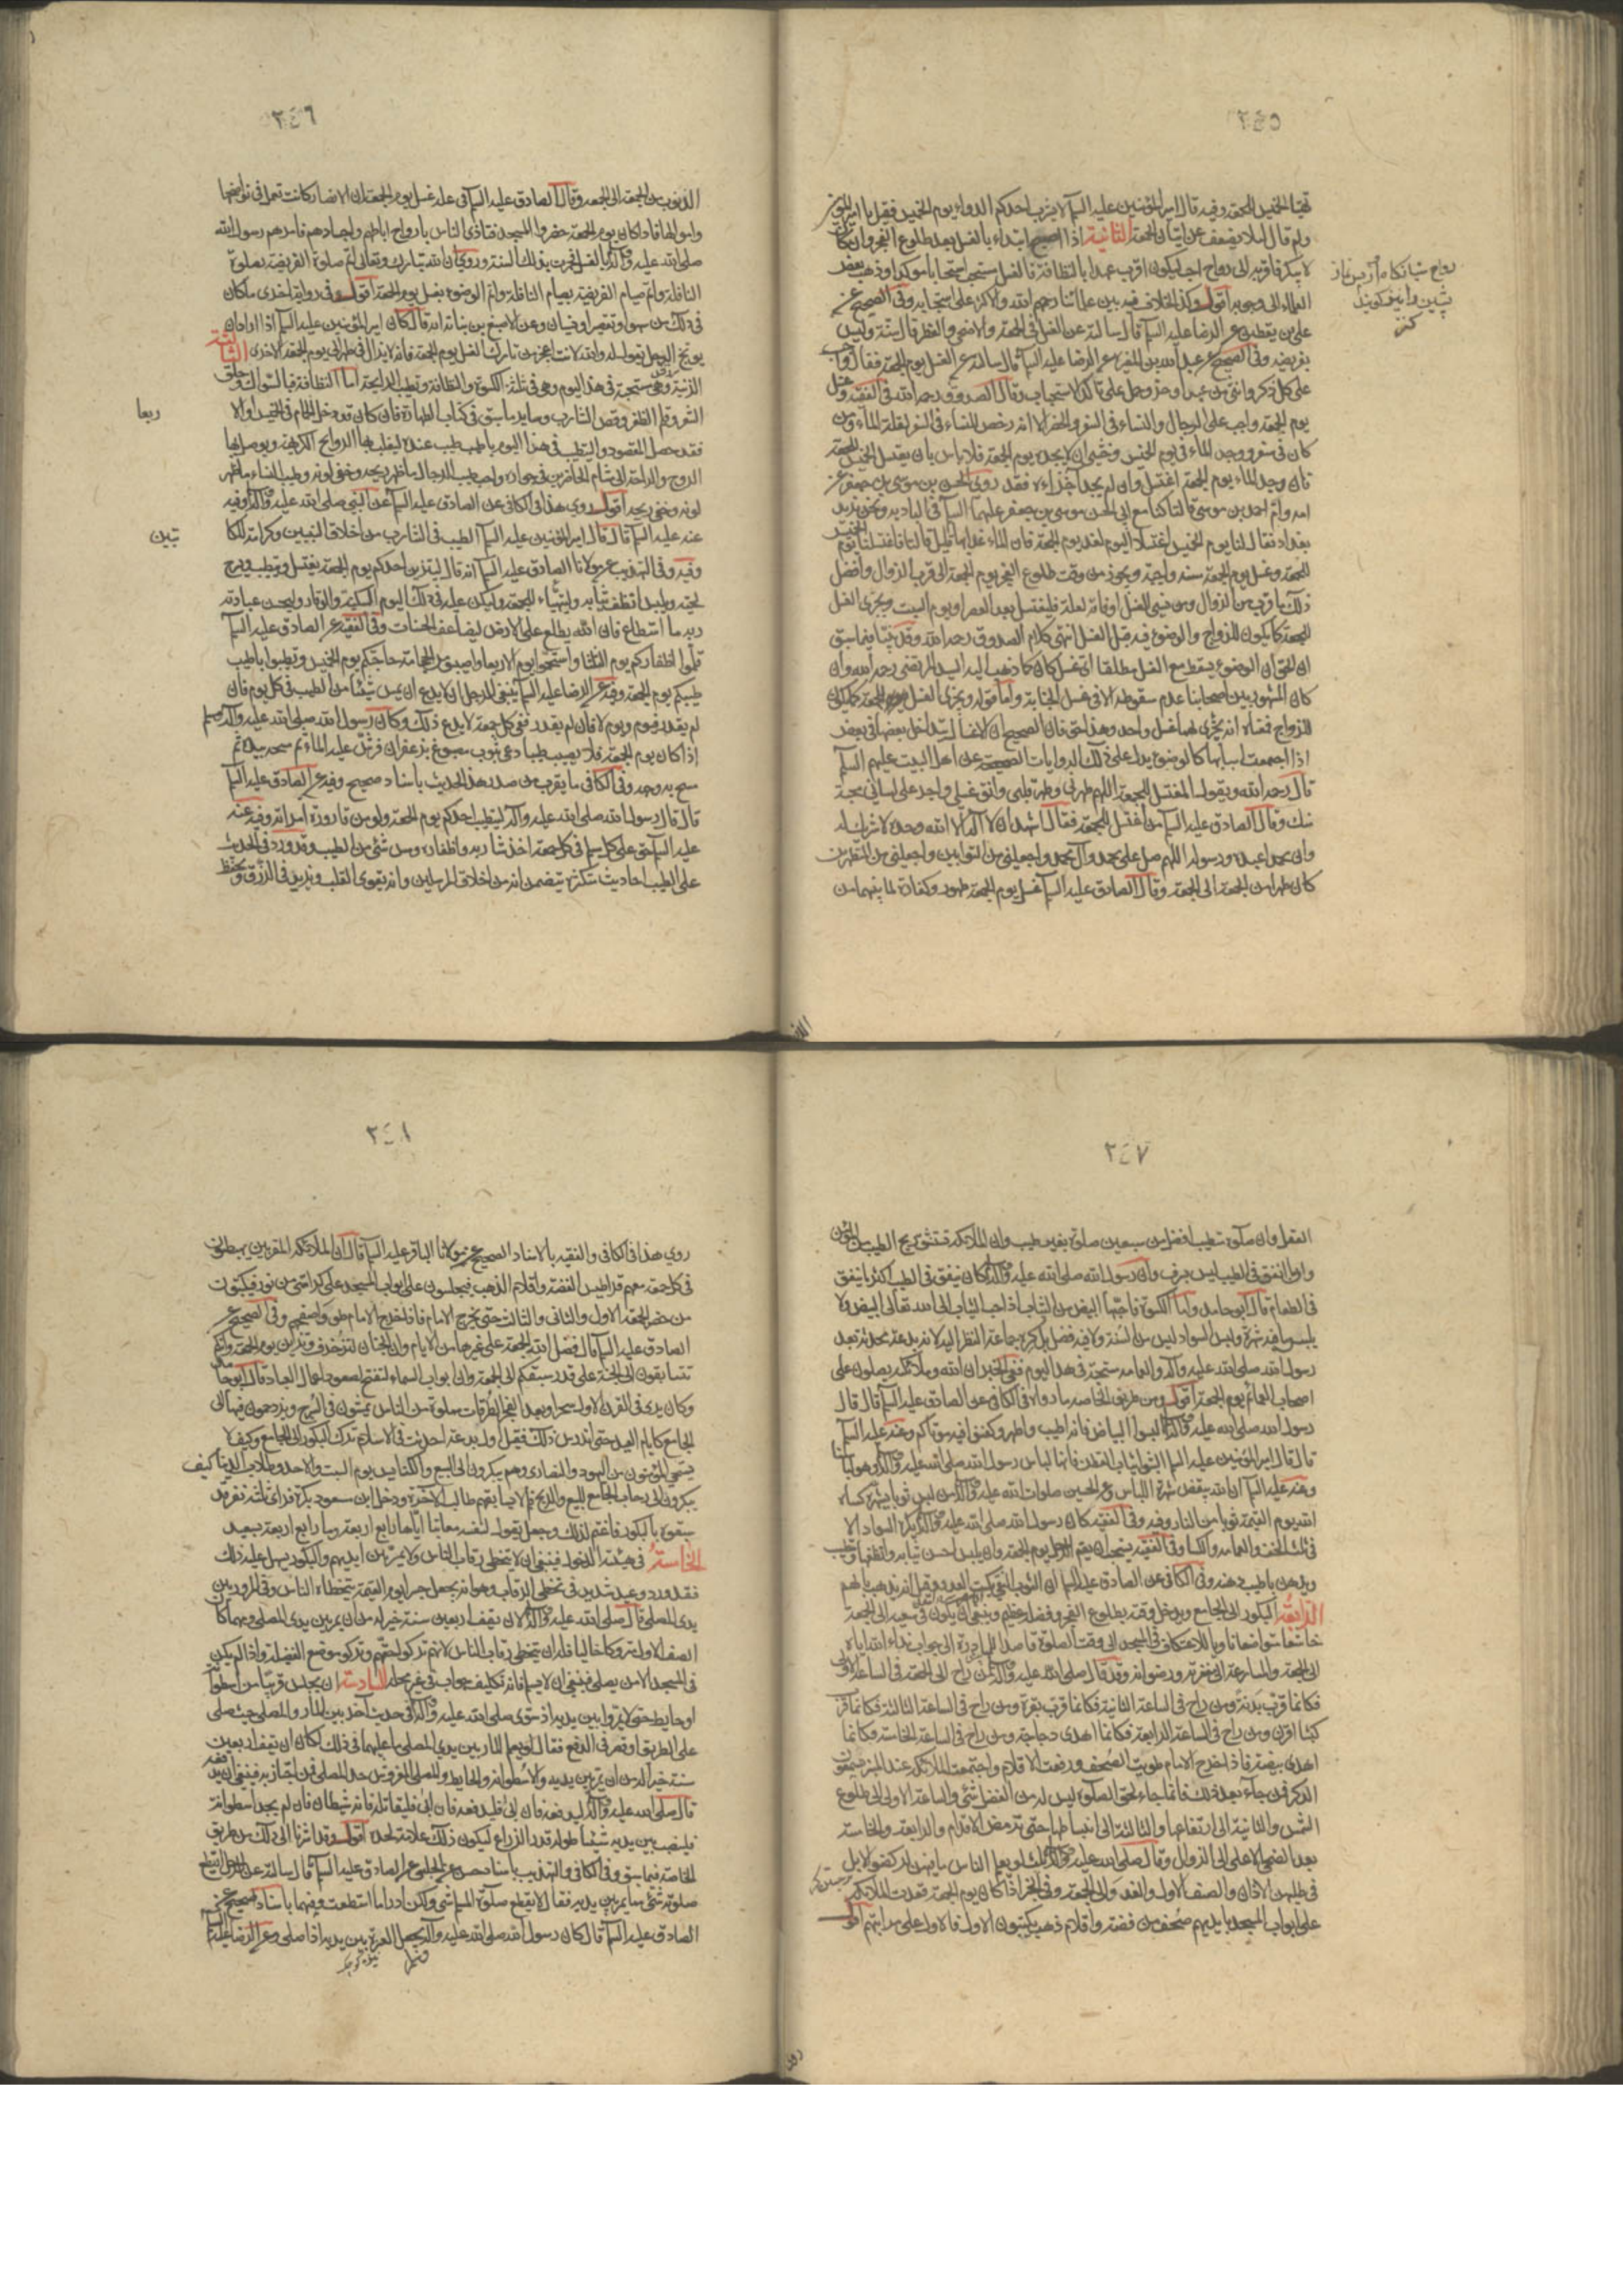 ٢٤٥
تهيأ الخميس للجمعة وفيه قال امير المؤمنين عليه السلم لا يشرب احدكم الدواء يوم الخميس فقيل يا امير المؤمنين
ولم قال لئلا يضعف عن اتيان الجمعة الثانية اذا اصبح ابتداء بالغسل بعد طلوع الفجر وان كان
لا يبكر فاقربه الى رواح احب ليكون اقرب عهدا بالنظافة فالغسل مستحب استحبابا مؤكدا وذهب بعض
العلماء الى وجوبه اقول وكذا الخلاف فيه بين علمائنا رحمهم الله والاكثر على استحبابه وفي الصحيح عن
علي بن يقطين عن الرضا عليه السلم قال سالته عن الغسل في الجمعة والاضحى والفطر قال سنة وليس
بفريضة وفي الصحيح عن عبد الله بن المغيرة عن الرضا عليه السلم قال سالته عن الغسل يوم الجمعة فقال واجب
على كل ذكر وانثى من عبد او حر وحمل على تاكد الاستحباب وقال الصدوق رحمه الله في الفقيه وغسل
يوم الجمعة واجب على الرجال والنساء في السفر والحضر الا انه رخص للنساء في السفر لقلة الماء ومن
كان في سفر ووجد الماء في يوم الخميس وخشي ان لا يجده يوم الجمعة فلا باس بان يغتسل الخميس للجمعة
فان وجد الماء يوم الجمعة اغتسل وان لم يجد اجزاءه فقد روى الحسن بن موسى بن جعفر عن
امه وام احمد بن موسى قالتا كنا مع ابي الحسن موسى بن جعفر عليهما السلم في البادية ونحن نريد
بغداد فقال لنا يوم الخميس اغتسلا اليوم لغد يوم الجمعة فان الماء غدا بها قليل قالتا فاغتسلنا يوم الخميس
للجمعة وغسل يوم الجمعة سنة واجبة ويجوز من وقت طلوع الفجر يوم الجمعة الى قرب الزوال وافضل
ذلك ما قرب من الزوال ومن نسي الغسل او فاته لعلة فليغتسل بعد العصر او يوم السبت ويجزي الغسل
للجمعة كما يكون للزواج والوضوء فيه قبل الغسل انتهى كلام الصدوق رحمه الله وقد بينا فيما سبق
ان الحق ان الوضوء يسقط مع الغسل مطلقا اي غسل كان كما ذهب اليه السيد المرتضى رحمه الله وان
كان المشهور بين اصحابنا عدم سقوطه الا في غسل الجنابة واما قوله ويجزي الغسل للجمعة كما يكون
للزواج فمعناه انه يجزي لهما غسل واحد وهذا حق فان الصحيح ان الاغسال يتداخل بعضها في بعض
اذا اجتمعت اسبابها كالوضوء يدل على ذلك الروايات الصحيحة عن اهل البيت عليهم السلم
قال رحمه الله ويقول المغتسل للجمعة اللهم طهرني وطهر قلبي وانق غسلي واجر على لساني محبة
منك وقال الصادق عليه السلم من اغتسل للجمعة فقال اشهد ان لا اله الا الله وحده لا شريك له
وان محمدا عبده ورسوله اللهم صل على محمد وآل محمد واجعلني من التوابين واجعلني من المتطهرين
كان طهرا من الجمعة الى الجمعة وقال الصادق عليه السلم غسل يوم الجمعة طهور وكفارة لما بينهما من
رواح شبانكاه از پس نماز
پشين را نيز كويند
كنز
٢٤٦
الذنوب من الجمعة الى الجمعة وقال الصادق عليه السلم في علة غسل يوم الجمعة ان الانصار كانت تعمل في نواضحها
واموالها فاذا كان يوم الجمعة حضروا المسجد فتاذى الناس بارواح اباطهم واجسادهم فامرهم رسول الله
صلى الله عليه وآله بالغسل فجرت بذلك السنة وروي ان الله تبارك وتعالى اتم صلوة الفريضة بصلوة
النافلة واتم صيام الفريضة بصيام النافلة واتم الوضوء بغسل يوم الجمعة اقول وفي رواية اخرى ما كان
في ذلك من سهو او تقصير او نسيان وعن الاصبغ بن نباتة انه قال كان امير المؤمنين عليه السلم اذا اراد ان
يوبخ الرجل يقول له والله لانت اعجز من تارك الغسل يوم الجمعة فانه لا يزال في طهر الى يوم الجمعة الاخرى الثالثة
الزينة وهي مستحبة في هذا اليوم وهي في ثلثة الكسوة والنظافة وتطييب الرايحة اما النظافة فبالسواك وحلق
الشعر وقلم الظفر وقص الشارب وساير ما سبق في كتاب الطهارة فان كان قد دخل الحمام في الخميس او الاربعا
فقد حصل المقصود والتطيب في هذا اليوم باطيب طيب عنده ليغلب بها الروايح الكريهة ويوصل بها
الروح والراحة الى مشام الحاضرين في جواره واحب طيب الرجال ما ظهر ريحه وخفي لونه وطيب النساء ما ظهر
لونه وخفي ريحه اقول روى هذا في الكافي عن الصادق عليه السلم عن النبي صلى الله عليه وآله وفيه
عنه عليه السلم قال قال امير المؤمنين عليه السلم الطيب في الشارب من اخلاق النبيين وكرامة للكاتبين
وفيه وفي التهذيب عن مولانا الصادق عليه السلم انه قال ليتزين احدكم يوم الجمعة يغتسل ويتطيب ويسرح
لحيته ويلبس انظف ثيابه وليتهياء للجمعة وليكن عليه في ذلك اليوم السكينة والوقار وليحسن عبادة
ربه ما استطاع فان الله يطلع على الارض ليضاعف الحسنات وفي الفقيه عن الصادق عليه السلم
قلموا اظفاركم يوم الثلثا واستحموا يوم الاربعا واصيبوا من الحجامة حاجتكم يوم الخميس وتطيبوا باطيب
طيبكم يوم الجمعة وفيه عن الرضا عليه السلم ينبغي للرجل ان لا يدع ان يمس شيئا من الطيب في كل يوم فان
لم يقدر فيوم ويوم لا فان لم يقدر ففي كل جمعة لا يدع ذلك وكان رسول الله صلى الله عليه وآله وسلم
اذا كان يوم الجمعة فلا يصيب طيبا دعى بثوب مصبوغ بزعفران فرش عليه الماء ثم مسحه بيده ثم
مسح به وجهه وفي الكافي ما يقرب من صدر هذا الحديث باسناد صحيح وفيه عن الصادق عليه السلم
قال قال رسول الله صلى الله عليه وآله ليتطيب احدكم يوم الجمعة ولو من قارورة امراته وفيه عنه
عليه السلم حق على كل مسلم في كل جمعة اخذ شاربه واظفاره ومس شئ من الطيب وقد ورد في الحديث
على الطيب احاديث متكثرة يتضمن انه من اخلاق المرسلين وانه يقوي القلب ويزيد في الرزق ويحفظ
ربعا
تبين
٢٤٧
العقل وان صلوة متطيب افضل من سبعين صلوة بغير طيب وان الملائكة تستنشق ريح الطيب من المؤمن
وان ما انفق في الطيب ليس بسرف وان رسول الله صلى الله عليه وآله كان ينفق في الطيب اكثر ما ينفق
في الطعام قال ابو حامد واما الكسوة فاحبها البياض من الثياب اذ احب الثياب الى الله تعالى البيض ولا
يلبس ما فيه شهرة ولبس السواد ليس من السنة ولا فيه فضل بل كره جماعة النظر اليه لانه بدعة محدثة بعد
رسول الله صلى الله عليه وآله والعمامة مستحبة في هذا اليوم ففي الخبر ان الله وملائكته يصلون على
اصحاب العمائم يوم الجمعة اقول ومن طريق الخاصة ما رواه في الكافي عن الصادق عليه السلم قال قال
رسول الله صلى الله عليه وآله البسوا البياض فانه اطيب واطهر وكفنوا فيه موتاكم وعنه عليه السلم
قال قال امير المؤمنين عليه السلم البسوا ثياب القطن فانها لباس رسول الله صلى الله عليه وآله وهو لباسنا
وعنه عليه السلم ان الله يبغض شهرة اللباس وعن الحسين صلوات الله عليه قال من لبس ثوبا يشهره كساه
الله يوم القيمة ثوبا من النار وفيه وفي الفقيه كان رسول الله صلى الله عليه وآله يكره السواد الا
في ثلث الخف والعمامة والكساء وفي الفقيه يستحب ان يعتم الرجل يوم الجمعة وان يلبس احسن ثيابه وانظفها ويتطيب
ويدهن باطيب دهنه وفي الكافي عن الصادق عليه السلم ان الثوب النقي يكبت العدو
الرابعة البكور الى الجامع ويدخل وقته بطلوع الفجر وفضله عظيم وينبغي ان يكون في سعيه الى الجمعة
خاشعا متواضعا ناويا للاعتكاف في المسجد الى وقت الصلوة قاصدا للمبادرة الى جواب نداء الله اياه
الى الجمعة والمسارعة الى مغفرته ورضوانه وقد قال صلى الله عليه وآله من راح الى الجمعة في الساعة الاولى
فكانما قرب بدنة ومن راح في الساعة الثانية فكانما قرب بقرة ومن راح في الساعة الثالثة فكانما قرب
كبشا اقرن ومن راح في الساعة الرابعة فكانما اهدى دجاجة ومن راح في الساعة الخامسة فكانما
اهدى بيضة فاذا خرج الامام طويت الصحف ورفعت الاقلام واجتمعت الملائكة عند المنبر يستمعون
الذكر فمن جاء بعد ذلك فانما جاء لحق الصلوة ليس له من الفضل شئ والساعة الاولى الى طلوع
الشمس والثانية الى ارتفاعها والثالثة الى انبساطها حتى ترمض الاقدام والرابعة والخامسة
بعد الضحى الاعلى الى الزوال وقال صلى الله عليه وآله ثلث لو يعلم الناس ما فيهن لركضوا الابل
في طلبهن الاذان والصف الاول والغدو الى الجمعة وفي الخبر اذا كان يوم الجمعة قعدت الملائكة
على ابواب المسجد بايديهم صحف من فضة واقلام من ذهب يكتبون الاول فالاول على مراتبهم اقول
٢٤٨
روي هذا في الكافي والفقيه بالاسناد الصحيح عن مولانا الباقر عليه السلم قال ان الملائكة المقربين يهبطون
في كل جمعة معهم قراطيس الفضة واقلام الذهب فيجلسون على ابواب المسجد على كراسي من نور فيكتبون
من حضر الجمعة الاول والثاني والثالث حتى يخرج الامام فاذا خرج الامام طووا صحفهم وفي الصحيح عن
الصادق عليه السلم قال فضل الله الجمعة على غيرها من الايام وان الجنان لتزخرف وتزين يوم الجمعة وانكم
تتسابقون الى الجنة على قدر سبقكم الى الجمعة وان ابواب السماء لتفتح لصعود اعمال العباد قال ابو حامد
وكان يرى في القرن الاول سحرا وبعد الفجر الطرقات مملوة من الناس يمشون في السرج ويزدحمون فيها الى
الجامع كايام العيد حتى اندرس ذلك فقيل اول بدعة احدثت في الاسلام ترك البكور الى الجامع وكيف لا
يستحي المؤمنون من اليهود والنصارى وهم يبكرون الى البيع والكنايس يوم السبت والاحد وطلاب الدنيا كيف
يبكرون الى رحاب الجامع للبيع والربح فلم لا يسابقهم طالب الاخرة ودخل ابن مسعود بكرة فراى ثلثة نفر قد
سبقوه بالبكور فاغتم لذلك وجعل يقول لنفسه معاتبا اياها رابع اربعة وما رابع اربعة ببعيد
الخامسة في هيئة الدخول فينبغي ان لا يتخطى رقاب الناس ولا يمر بين ايديهم والبكور يسهل عليه ذلك
فقد ورد وعيد شديد في تخطي الرقاب وهو انه يجعل جسرا يوم القيمة يتخطاه الناس وفي المرور بين
يدي المصلي قال صلى الله عليه وآله لان يقف اربعين سنة خير له من ان يمر بين يدي المصلي ومهما كان
الصف الاول متروكا خاليا فله ان يتخطى رقاب الناس لانهم تركوا حقهم وتركوا موضع الفضيلة واذا لم يكن
في المسجد الا من يصلي فينبغي ان لا يسلم فانه تكليف جواب في غير محله السادسة ان يجلس قريبا من اسطوانة
او حايط حتى لا يمروا بين يديه اذ سوى صلى الله عليه وآله في حديث آخر بين المار والمصلي حيث صلى
على الطريق او قصر في الدفع فقال لو يعلم المار بين يدي المصلي ما عليهما في ذلك لكان ان يقف اربعين
سنة خيرا له من ان يمر بين يديه والاسطوانة والحايط والمصلى المفروش حد المصلي فمن اجتاز به فينبغي ان يدفعه
قال صلى الله عليه وآله ليدفعه فان ابى فليدفعه فان ابى فليقاتله فانه شيطان فان لم يجد اسطوانة
فلينصب بين يديه شيئا طوله قدر الذراع ليكون ذلك علامة لحده اقول وقد اشرنا الى ذلك من طريق
الخاصة فيما سبق وفي الكافي والتهذيب باسناد حسن عن الحلبي عن الصادق عليه السلم قال سالته عن الرجل ايقطع
صلوته شئ مما يمر بين يديه فقال لا يقطع صلوة المسلم شئ ولكن ادراء ما استطعت وفيهما باسناد صحيح عن
الصادق عليه السلم قال كان رسول الله صلى الله عليه وآله يجعل العنزة بين يديه اذا صلى وعن الرضا عليه السلم